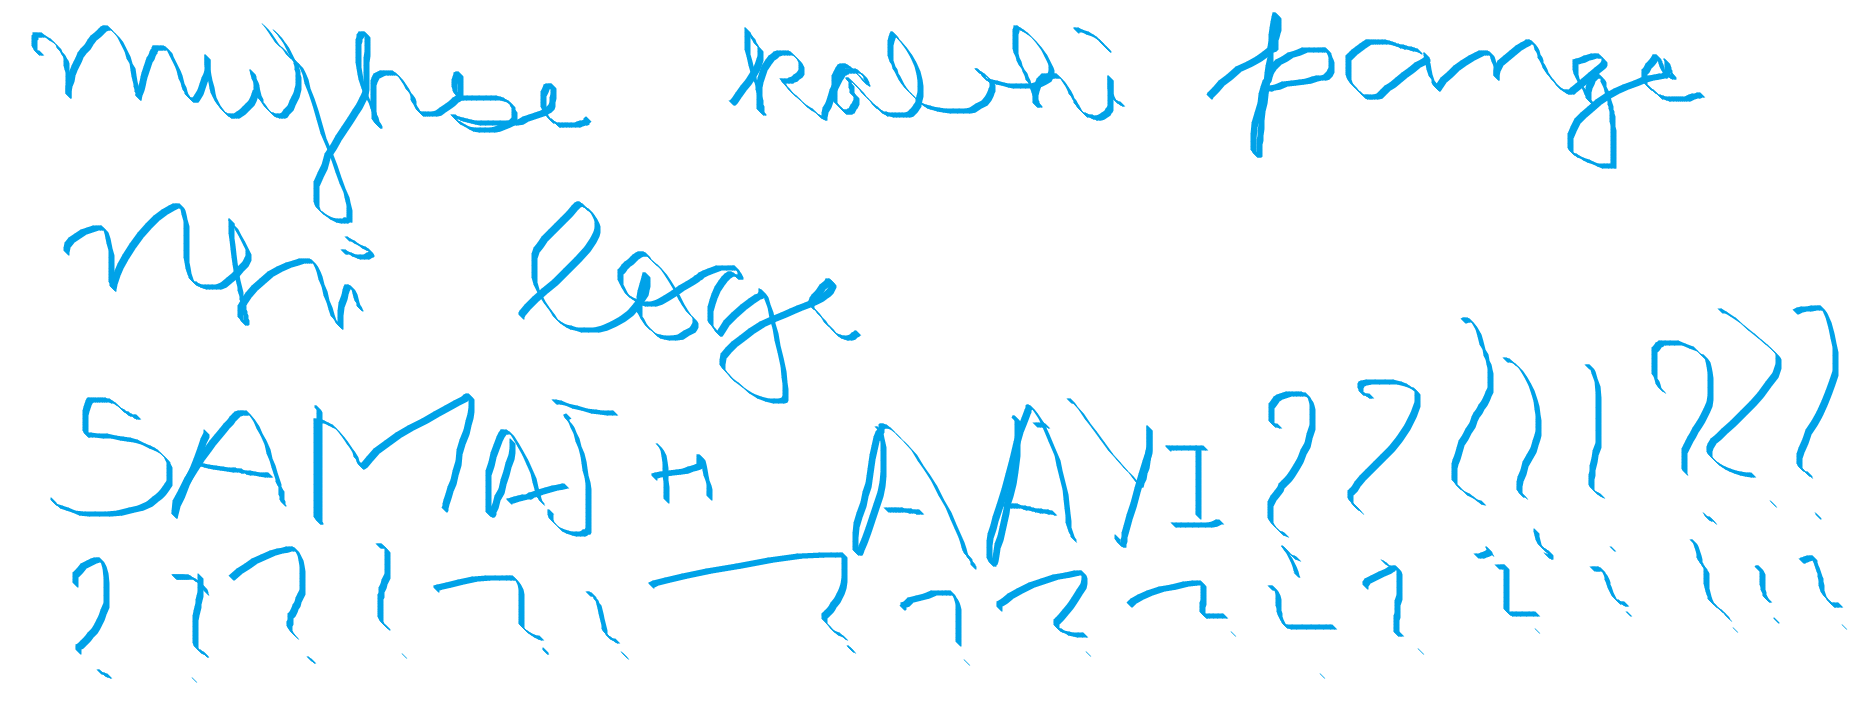 mujhse kabhi pange
nhi loge
SAMAJH AAYI ????????
?????????????????